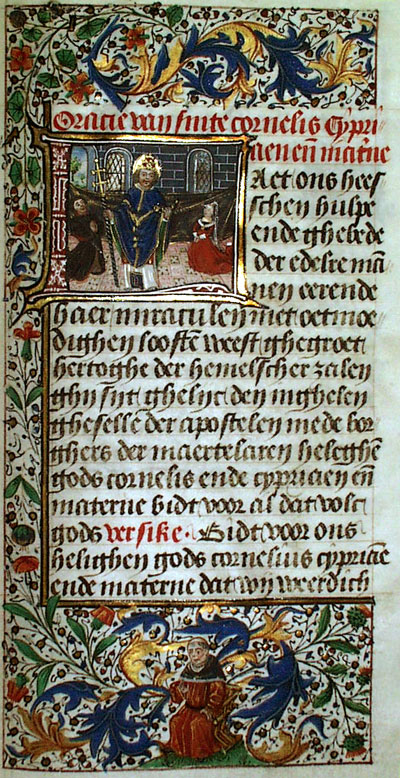 Oracie van sinte cornelis Cypri
aen en̄ mat'ne
Aet ons hees
schen hulpe
ende ghebede
der edelre mā
nen eerende
haer miraculen met oetmoe
dighen looste weest ghegroet
hertoghe der hemelscher zalen
ghij sijt ghelijc den inghelen
gheselle der apostelen mede bor
ghers der maertelaren heleghē
gods cornelis ende cypricien en̄
materne bidt voor al dat volc
gods versike. Bidt voor ons
helighen gods cornelius cypriciē
ende materne dat wij weerdich